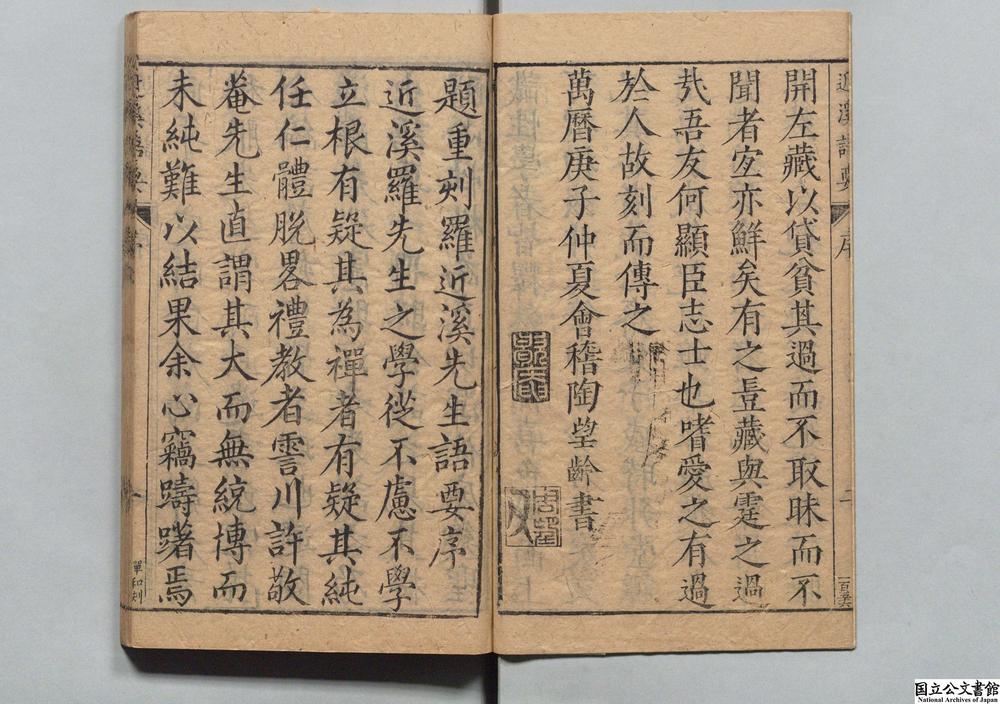 近溪語要
序
二
開左藏以貸貧其過而不取昧而不
聞者宐亦鮮矣有之豈藏與霆之過
㢤吾友何顯臣志士也嗜愛之有過
於人故刻而傳之
萬曆庚子仲夏會稽陶望齡書
題重刻羅近溪先生語要序
近溪羅先生之學從不慮不學
立根有疑其為禪者有疑其純
任仁體脫畧禮教者霅川許敬
菴先生直謂其大而無統博而
未純難以結果余心竊躊躇焉
近溪語要
序
一
單和刻
国立公文書館
National Archives of Japan